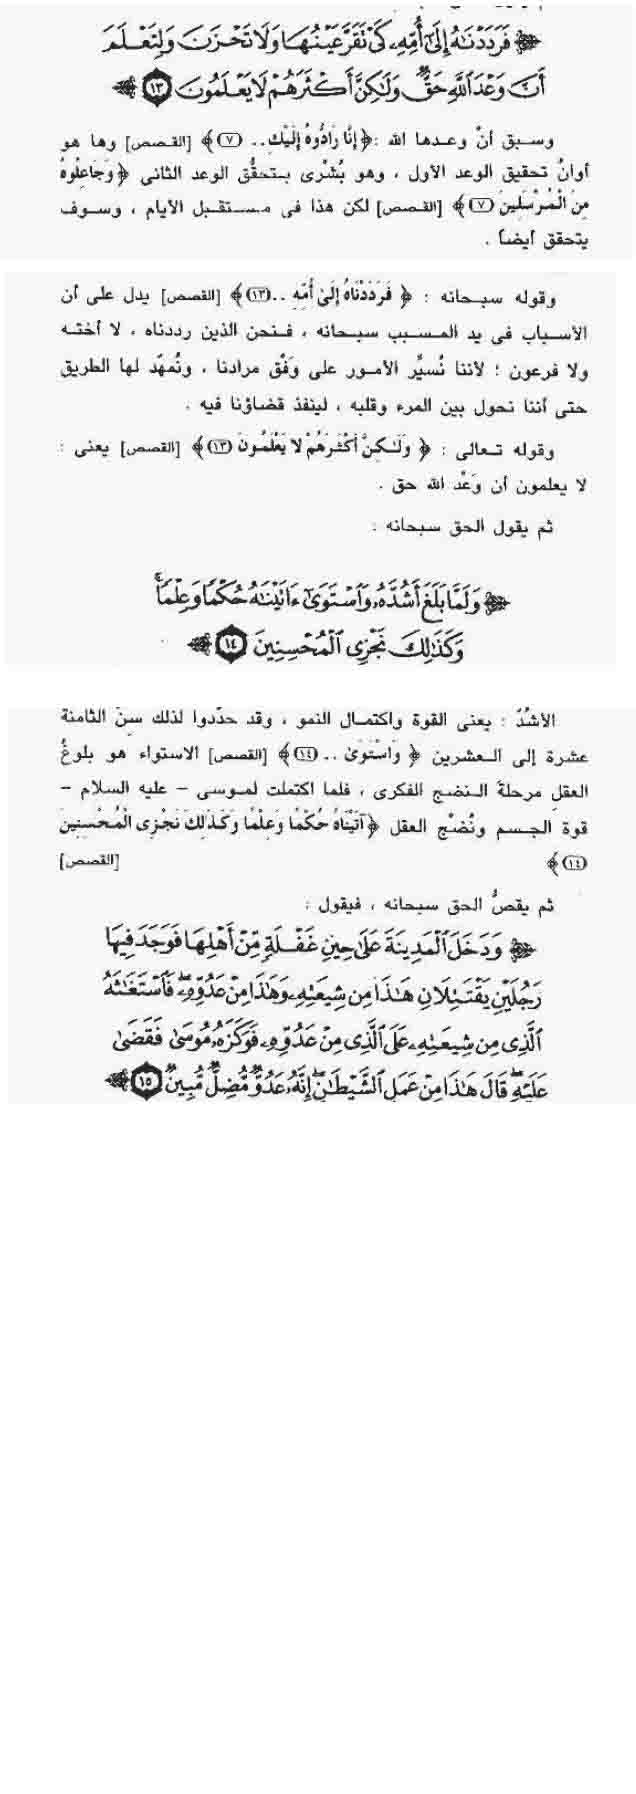 ﴿ فَرَدَدْنَٰهُ إِلَىٰٓ أُمِّهِۦ كَىْ تَقَرَّ عَيْنُهَا وَلَا تَحْزَنَ وَلِتَعْلَمَ
أَنَّ وَعْدَ ٱللَّهِ حَقٌّ وَلَٰكِنَّ أَكْثَرَهُمْ لَا يَعْلَمُونَ ١٣ ﴾
وسبق أنْ وعدها الله : ﴿ إِنَّا رَادُّوهُ إِلَيْكِ .. (٧) ﴾ [القصص] وها هو
أوانُ تحقيق الوعد الأول ، وهو بُشْرى بتحقُّق الوعد الثانى ﴿ وَجَاعِلُوهُ
مِنَ الْمُرْسَلِينَ (٧) ﴾ [القصص] لكن هذا فى مستقبل الأيام ، وسوف
يتحقق أيضاً .
وقوله سبحانه : ﴿ فَرَدَدْنَاهُ إِلَىٰ أُمِّهِ .. (١٣) ﴾ [القصص] يدل على أن
الأسباب فى يد المسبب سبحانه ، فنحن الذين رددناه ، لا أخته
ولا فرعون ؛ لأننا نُسيِّر الأمور على وَفْق مرادنا ، ونُمهِّد لها الطريق
حتى أننا نحول بين المرء وقلبه ، لينفذ قضاؤنا فيه .
وقوله تعالى : ﴿ وَلَٰكِنَّ أَكْثَرَهُمْ لا يَعْلَمُونَ (١٣) ﴾ [القصص] يعنى :
لا يعلمون أن وَعْد الله حق .
ثم يقول الحق سبحانه :
﴿ وَلَمَّا بَلَغَ أَشُدَّهُۥ وَٱسْتَوَىٰٓ ءَاتَيْنَٰهُ حُكْمًا وَعِلْمًا ۚ
وَكَذَٰلِكَ نَجْزِى ٱلْمُحْسِنِينَ ١٤ ﴾
الأشُدّ : يعنى القوة واكتمال النمو ، وقد حدَّدوا لذلك سِنَّ الثامنة
عشرة إلى العشرين ﴿ وَاسْتَوَىٰ .. (١٤) ﴾ [القصص] الاستواء هو بلوغُ
العقل مرحلة النضج الفكرى ، فلما اكتملت لموسى - عليه السلام -
قوة الجسم ونُضْج العقل ﴿ آتَيْنَاهُ حُكْمًا وَعِلْمًا وَكَذَٰلِكَ نَجْزِى الْمُحْسِنِينَ
(١٤) ﴾ [القصص]
ثم يقصُّ الحق سبحانه ، فيقول :
﴿ وَدَخَلَ ٱلْمَدِينَةَ عَلَىٰ حِينِ غَفْلَةٍ مِّنْ أَهْلِهَا فَوَجَدَ فِيهَا
رَجُلَيْنِ يَقْتَتِلَانِ هَٰذَا مِن شِيعَتِهِۦ وَهَٰذَا مِنْ عَدُوِّهِۦ ۖ فَٱسْتَغَٰثَهُ
ٱلَّذِى مِن شِيعَتِهِۦ عَلَى ٱلَّذِى مِنْ عَدُوِّهِۦ فَوَكَزَهُۥ مُوسَىٰ فَقَضَىٰ
عَلَيْهِ ۖ قَالَ هَٰذَا مِنْ عَمَلِ ٱلشَّيْطَٰنِ ۖ إِنَّهُۥ عَدُوٌّ مُّضِلٌّ مُّبِينٌ ١٥ ﴾